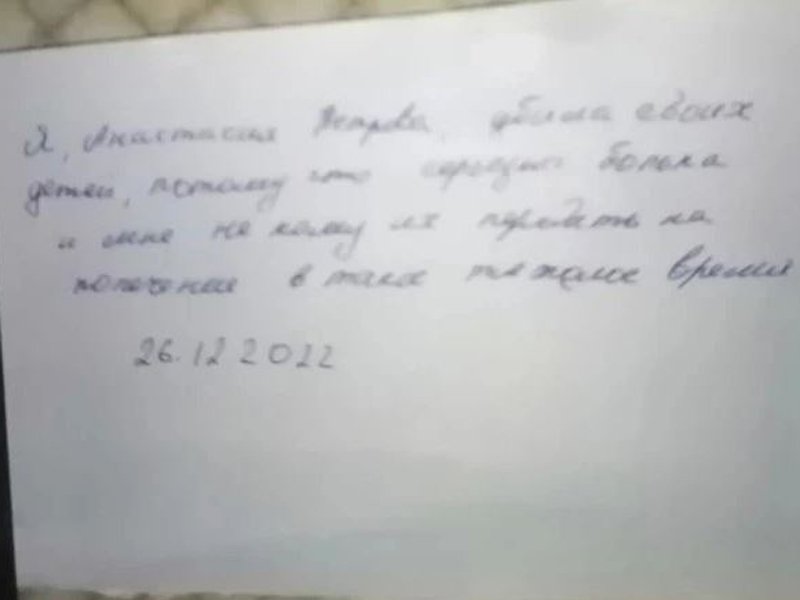 Я, Анастасия Петрова, убила своих
детей, потому что серьезно больна
и мне не кому их передать на
попечение в такое тяжелое время
26.12 2022